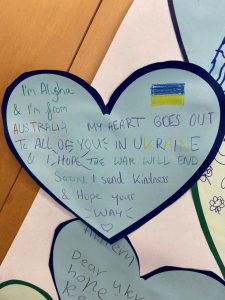 I'm Aligha
& I'm from
AUSTRALIA MY HEART GOES OUT
TO ALL OF YOU IN UKRAINE
& I HOPE THE WAR WILL END
Soon. I send Kindness
& Hope your
WAY
Dear ukr
hope